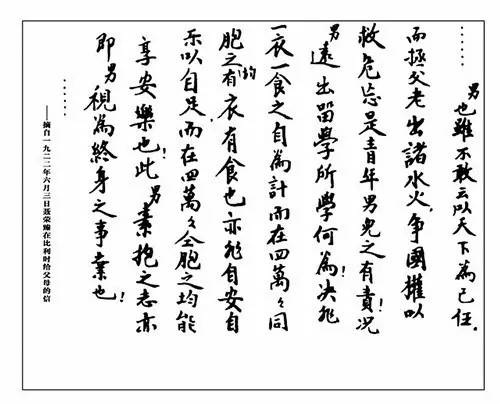 ……
男也雖不敢云以天下為己任。
而拯父老出諸水火，争國權以
救危急是青年男兒之有責！况
男遠出留學所學何為！决非
一衣一食之自為計而在四萬々同
胞之均有衣有食也亦非自安自
樂以自足而在四萬々仝胞之均能
享安樂也！此男素抱之志亦
即男視為終身之事業也！
……
——摘自一九二二年六月三日聂荣臻在比利时给父母的信